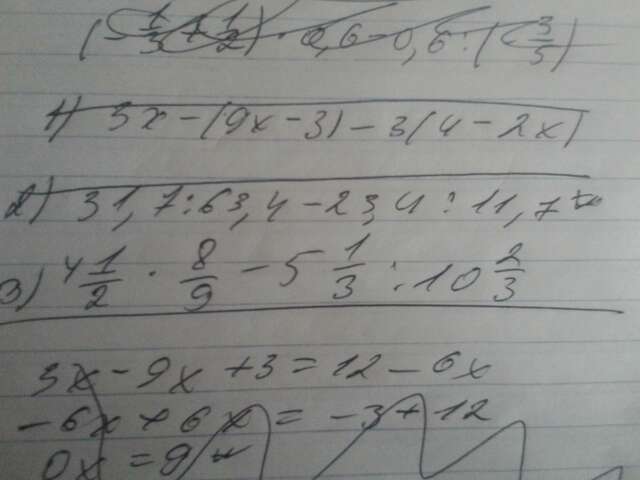 (-1/3+1/2)·0,6-0,6:(-3/5)
1) 3x-(9x-3)-3(4-2x)
2) 31,7:63,4-23,4:11,7=
3) 4 1/2 · 8/9 - 5 1/3 : 10 2/3
3x-9x+3=12-6x
-6x+6x=-3+12
0x=9